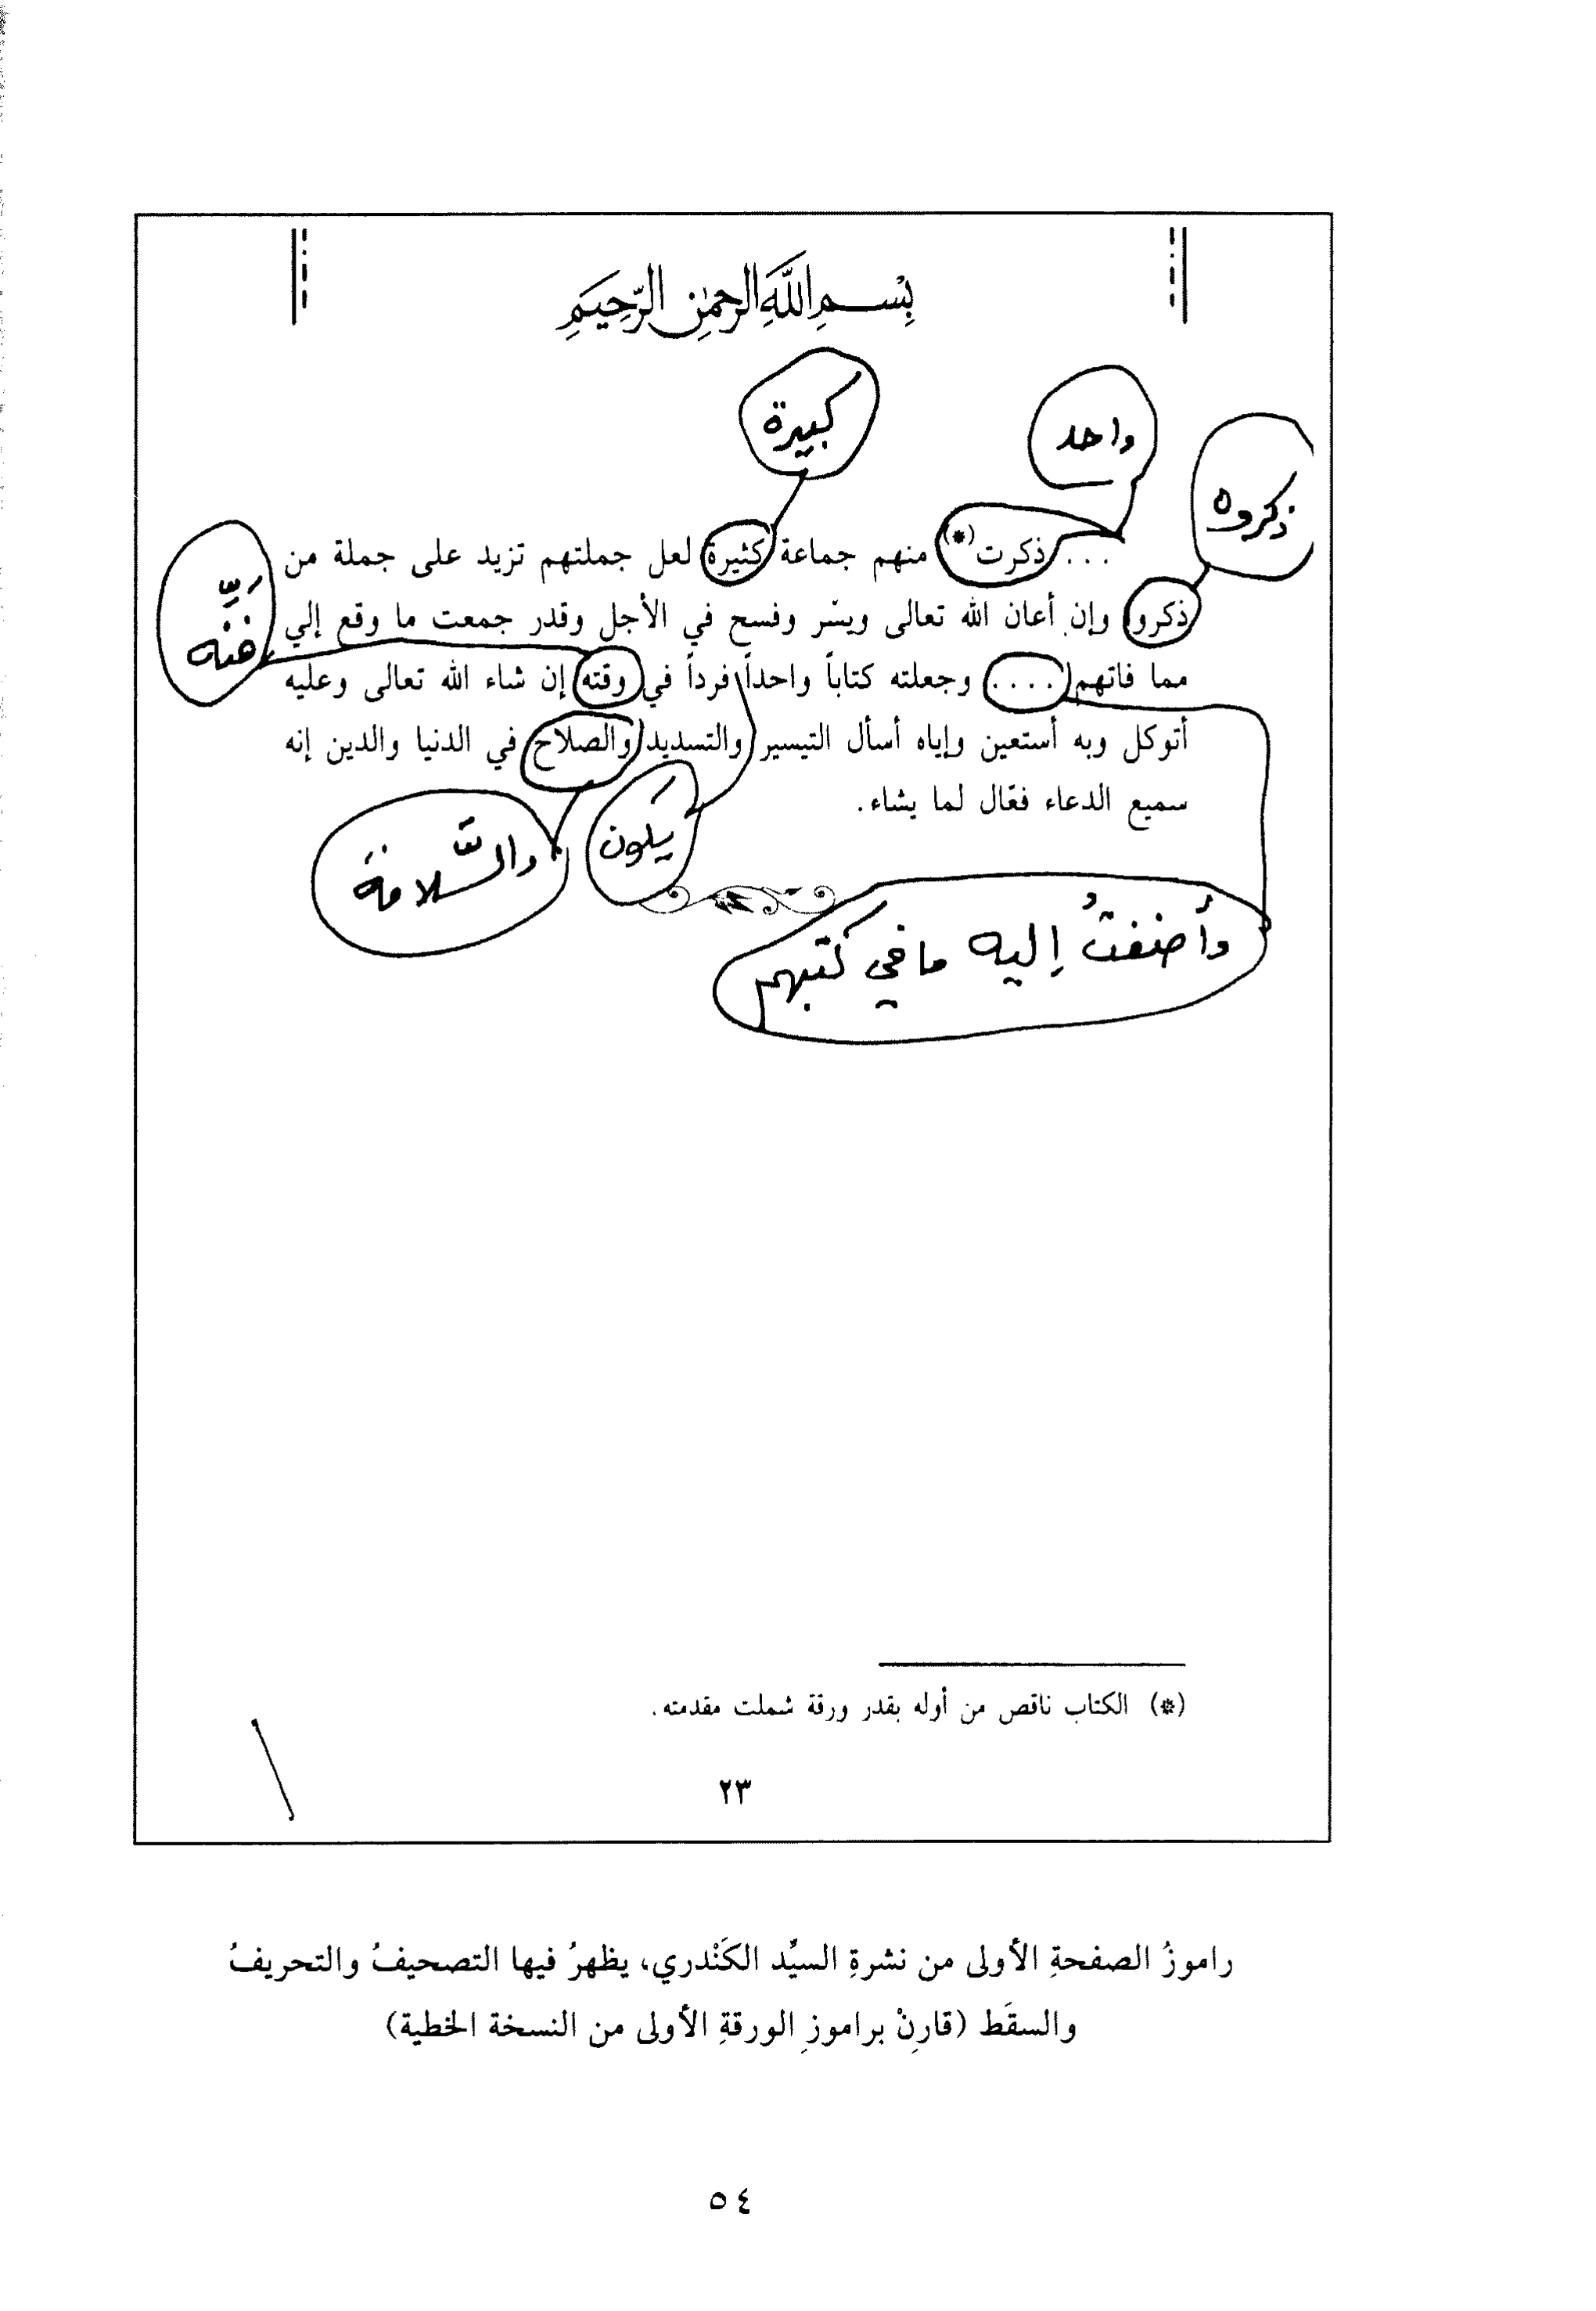 بِسْــمِ اللَّهِ الرحمٰنِ الرَّحِيَمِ
كبيرة
واحد
ذكروه
... ذكرت(*) منهم جماعة كثيرة لعل جملتهم تزيد على جملة من
ذكروا وإن أعان الله تعالى ويسّر وفسح في الأجل وقدر جمعت ما وقع إلي
مما فاتهم .... وجعلته كتاباً واحداً فرداً في وقته إن شاء الله تعالى وعليه
أتوكل وبه أستعين وإياه أسأل التيسير والتسديد والصلاح في الدنيا والدين إنه
سميع الدعاء فعّال لما يشاء.
فَنِّه
يكون
والسَّلامة
وأضفتُ إليه ما في كتبهم
(*) الكتاب ناقص من أوله بقدر ورقة شملت مقدمته.
٢٣
راموزُ الصفحةِ الأولى من نشرةِ السيِّد الكَنْدري، يظهرُ فيها التصحيفُ والتحريفُ
والسقَط (قارنْ براموزِ الورقةِ الأولى من النسخة الخطية)
٥٤